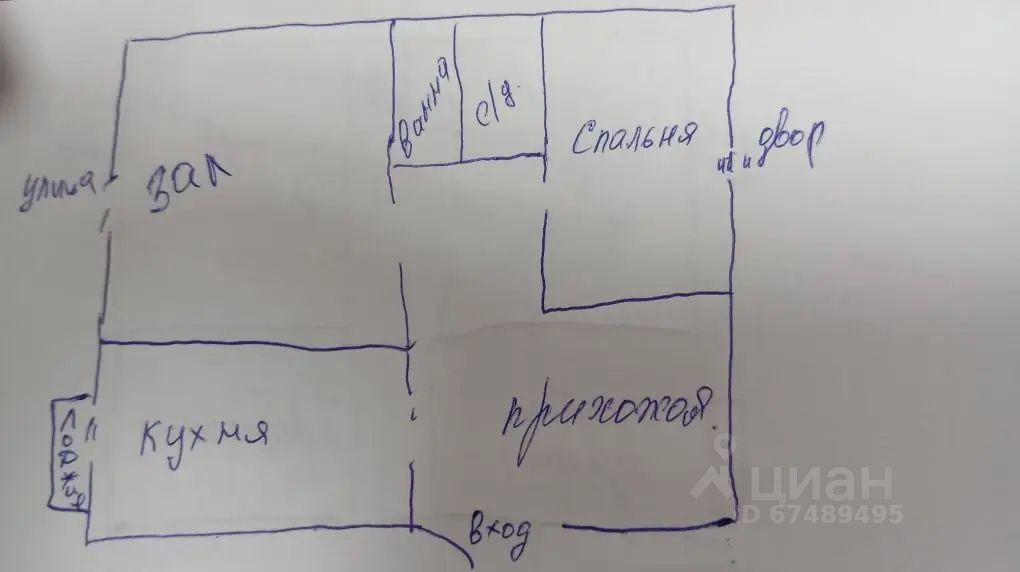 Ванна
с/у.
Спальня
двор
улица
зал
кухня
лоджия
прихожая.
вход
циан
ID 67489495